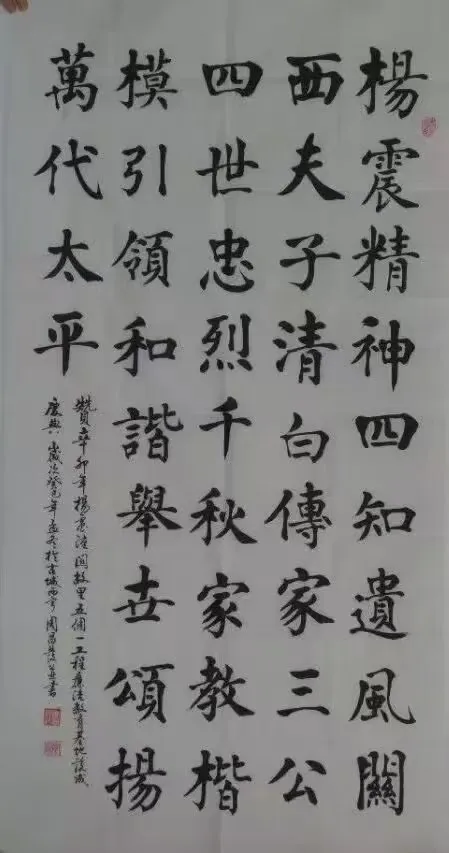 楊震精神四知遺風關
西夫子清白傳家三公
四世忠烈千秋家教楷
模引領和諧舉世頌揚
萬代太平
贊辛卯年楊震潼關故里五個一工程廉潔教育基地落成
慶典歲次癸巳年孟冬於古城西寧周昌